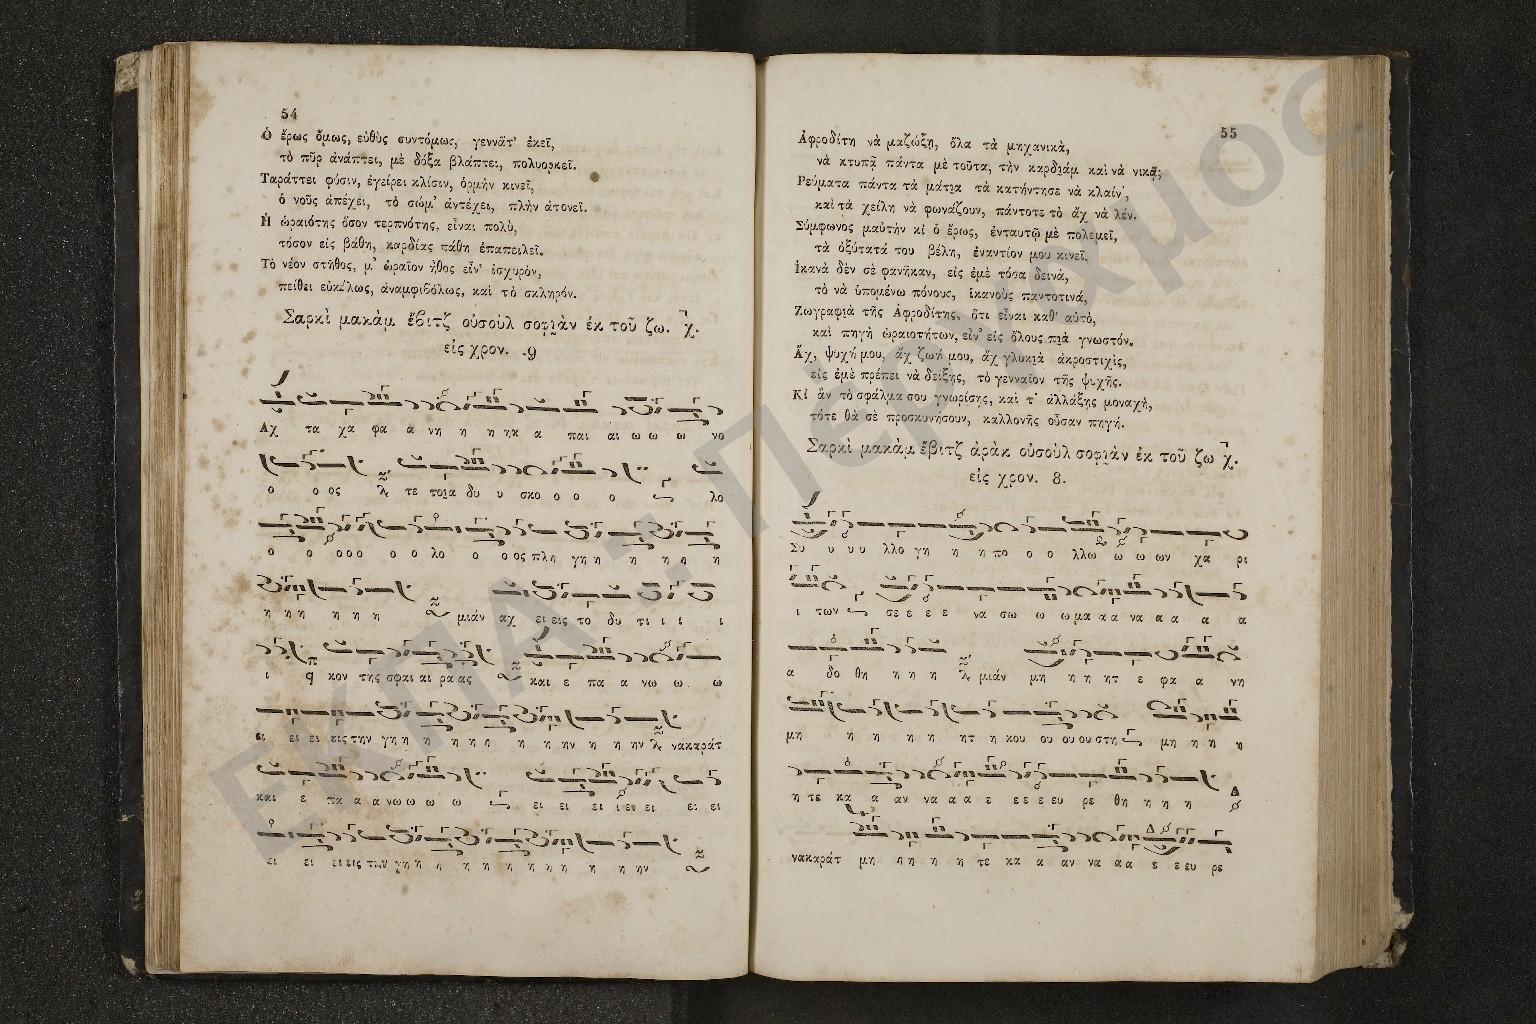 54
Ὁ ἔρως ὅμως, εὐθὺς συντόμως, γεννᾶτ' ἐκεῖ,
τὸ πῦρ ἀνάπτει, μὲ δόξα βλάπτει, πολυορκεῖ.
Ταράττει φύσιν, ἐγείρει κλίσιν, ὁρμὴν κινεῖ,
ὁ νοῦς ἀπέχει, τὸ σώμ' ἀντέχει, πλὴν ἀτονεῖ.
Ἡ ὡραιότης ὅσον τερπνότης, εἶναι πολὺ,
τόσον εἰς βάθη, καρδίας πάθη ἐπαπειλεῖ.
Τὸ νέον στῆθος, μ' ὡραῖον ἦθος εἶν' ἰσχυρὸν,
πείθει εὐκόλως, ἀναμφιβόλως, καὶ τὸ σκληρόν.
Σαρκὶ μακὰμ ἔβιτζ οὐσοὺλ σοφιὰν ἐκ τοῦ ζω. χ.
εἰς χρον. 9
Αχ τα χα φα α νη η η ηκ α παι αι ω ω ω νο
ο ο ος τε τοια δυ υ σκο ο ο ο λο
ο ο ο ο ο ο ο λο ο ο ος πλη γη η η η η η
η η η η η η μιάν αχ ει εις το δυ τι ι ι ι
ι κον της σφαι αι ρα ας και ε πα α νω ω ω
ει ει ει εις την γη η η η η η η η ην η η ην νακαράτ
και ε πα α α νω ω ω ω ει ει ει ι ει ει ει ει
ει ει ει εις την γη η η η η η η η η η ην
55
Ἀφροδίτη νὰ μαζώξῃ, ὅλα τὰ μηχανικὰ,
νὰ κτυπᾷ πάντα μὲ τοῦτα, τὴν καρδιάμ καὶ νὰ νικᾷ;
Ῥεύματα πάντα τὰ μάτια τὰ κατήντησε νὰ κλαίν',
καὶ τὰ χείλη νὰ φωνάζουν, πάντοτε τὸ ἄχ νὰ λέν.
Σύμφωνος μαὐτὴν κι ὁ ἔρως, ἐνταυτῷ μὲ πολεμεῖ,
τὰ ὀξύτατά του βέλη, ἐναντίον μου κινεῖ.
Ἱκανὰ δὲν σὲ φανῆκαν, εἰς ἐμὲ τόσα δεινὰ,
τὸ νὰ ὑπομένω πόνους, ἱκανοὺς παντοτινά,
Ζωγραφιὰ τῆς Ἀφροδίτης, ὅτι εἶναι καθ' αὑτὸ,
καὶ πηγὴ ὡραιοτήτων, εἶν' εἰς ὅλους πιὰ γνωστόν.
Ἄχ, ψυχή μου, ἄχ ζωή μου, ἄχ γλυκιὰ ἀκροστιχὶς,
εἰς ἐμὲ πρέπει νὰ δείξῃς, τὸ γενναῖον τῆς ψυχῆς.
Κι ἂν τὸ σφάλμα σου γνωρίσῃς, καὶ τ' ἀλλάξῃς μοναχὴ,
τότε θὰ σὲ προσκυνήσουν, καλλονῆς οὖσαν πηγή.
Σαρκὶ μακὰμ ἔβιτζ ἀρὰκ οὐσοὺλ σοφιὰν ἐκ τοῦ ζω χ.
εἰς χρον. 8.
Συ υ υ υ λλο γη η η πο ο ο λλω ω ω ων χα ρι
ι των σε ε ε ε να σω ω ω μα α α να α α α α
α δο θη η η η μιάν μη η η ητ ε φα α νη
μη η η η η ητ η κου ου ου ου στη μη η η η
η τε κα α αν να α α ε ε ε ε ευ ρε θη η η η
νακαράτ μη η η η η τε κα α αν να α α ε ε ευ ρε
ΕΚΠΑ - Πέργαμος